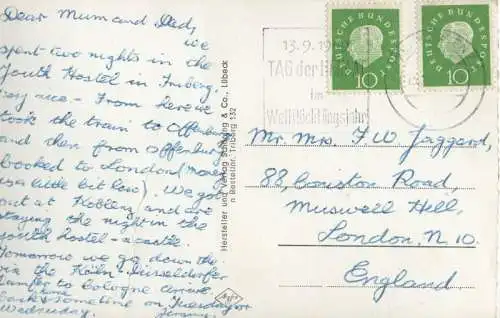 Dear Mum and Dad,
we
spent two nights in the
Youth Hostel in Triberg.
very nice - From here we
took the train to Offenburg
and then from Offenburg
booked to London (money
was little bit low). We got
out at Koblenz and are
staying the night in the
youth hostel - a castle.
Tomorrow we go down the
via the Köln-Düsseldorfer
to Cologne arrive
back home sometime on Tuesday or
Wednesday. Jeremy.
Hersteller und Verlag & Co., Lübeck
Bestellnr. Triberg 132
13.9.19
TAG der
im
Weltflüchtlingsjahr
DEUTSCHE BUNDESPOST
10
DEUTSCHE BUNDESPOST
10
Mr. Mrs. F. W. Jaggard,
88, Coniston Road,
Muswell Hill,
London, N.10.
England